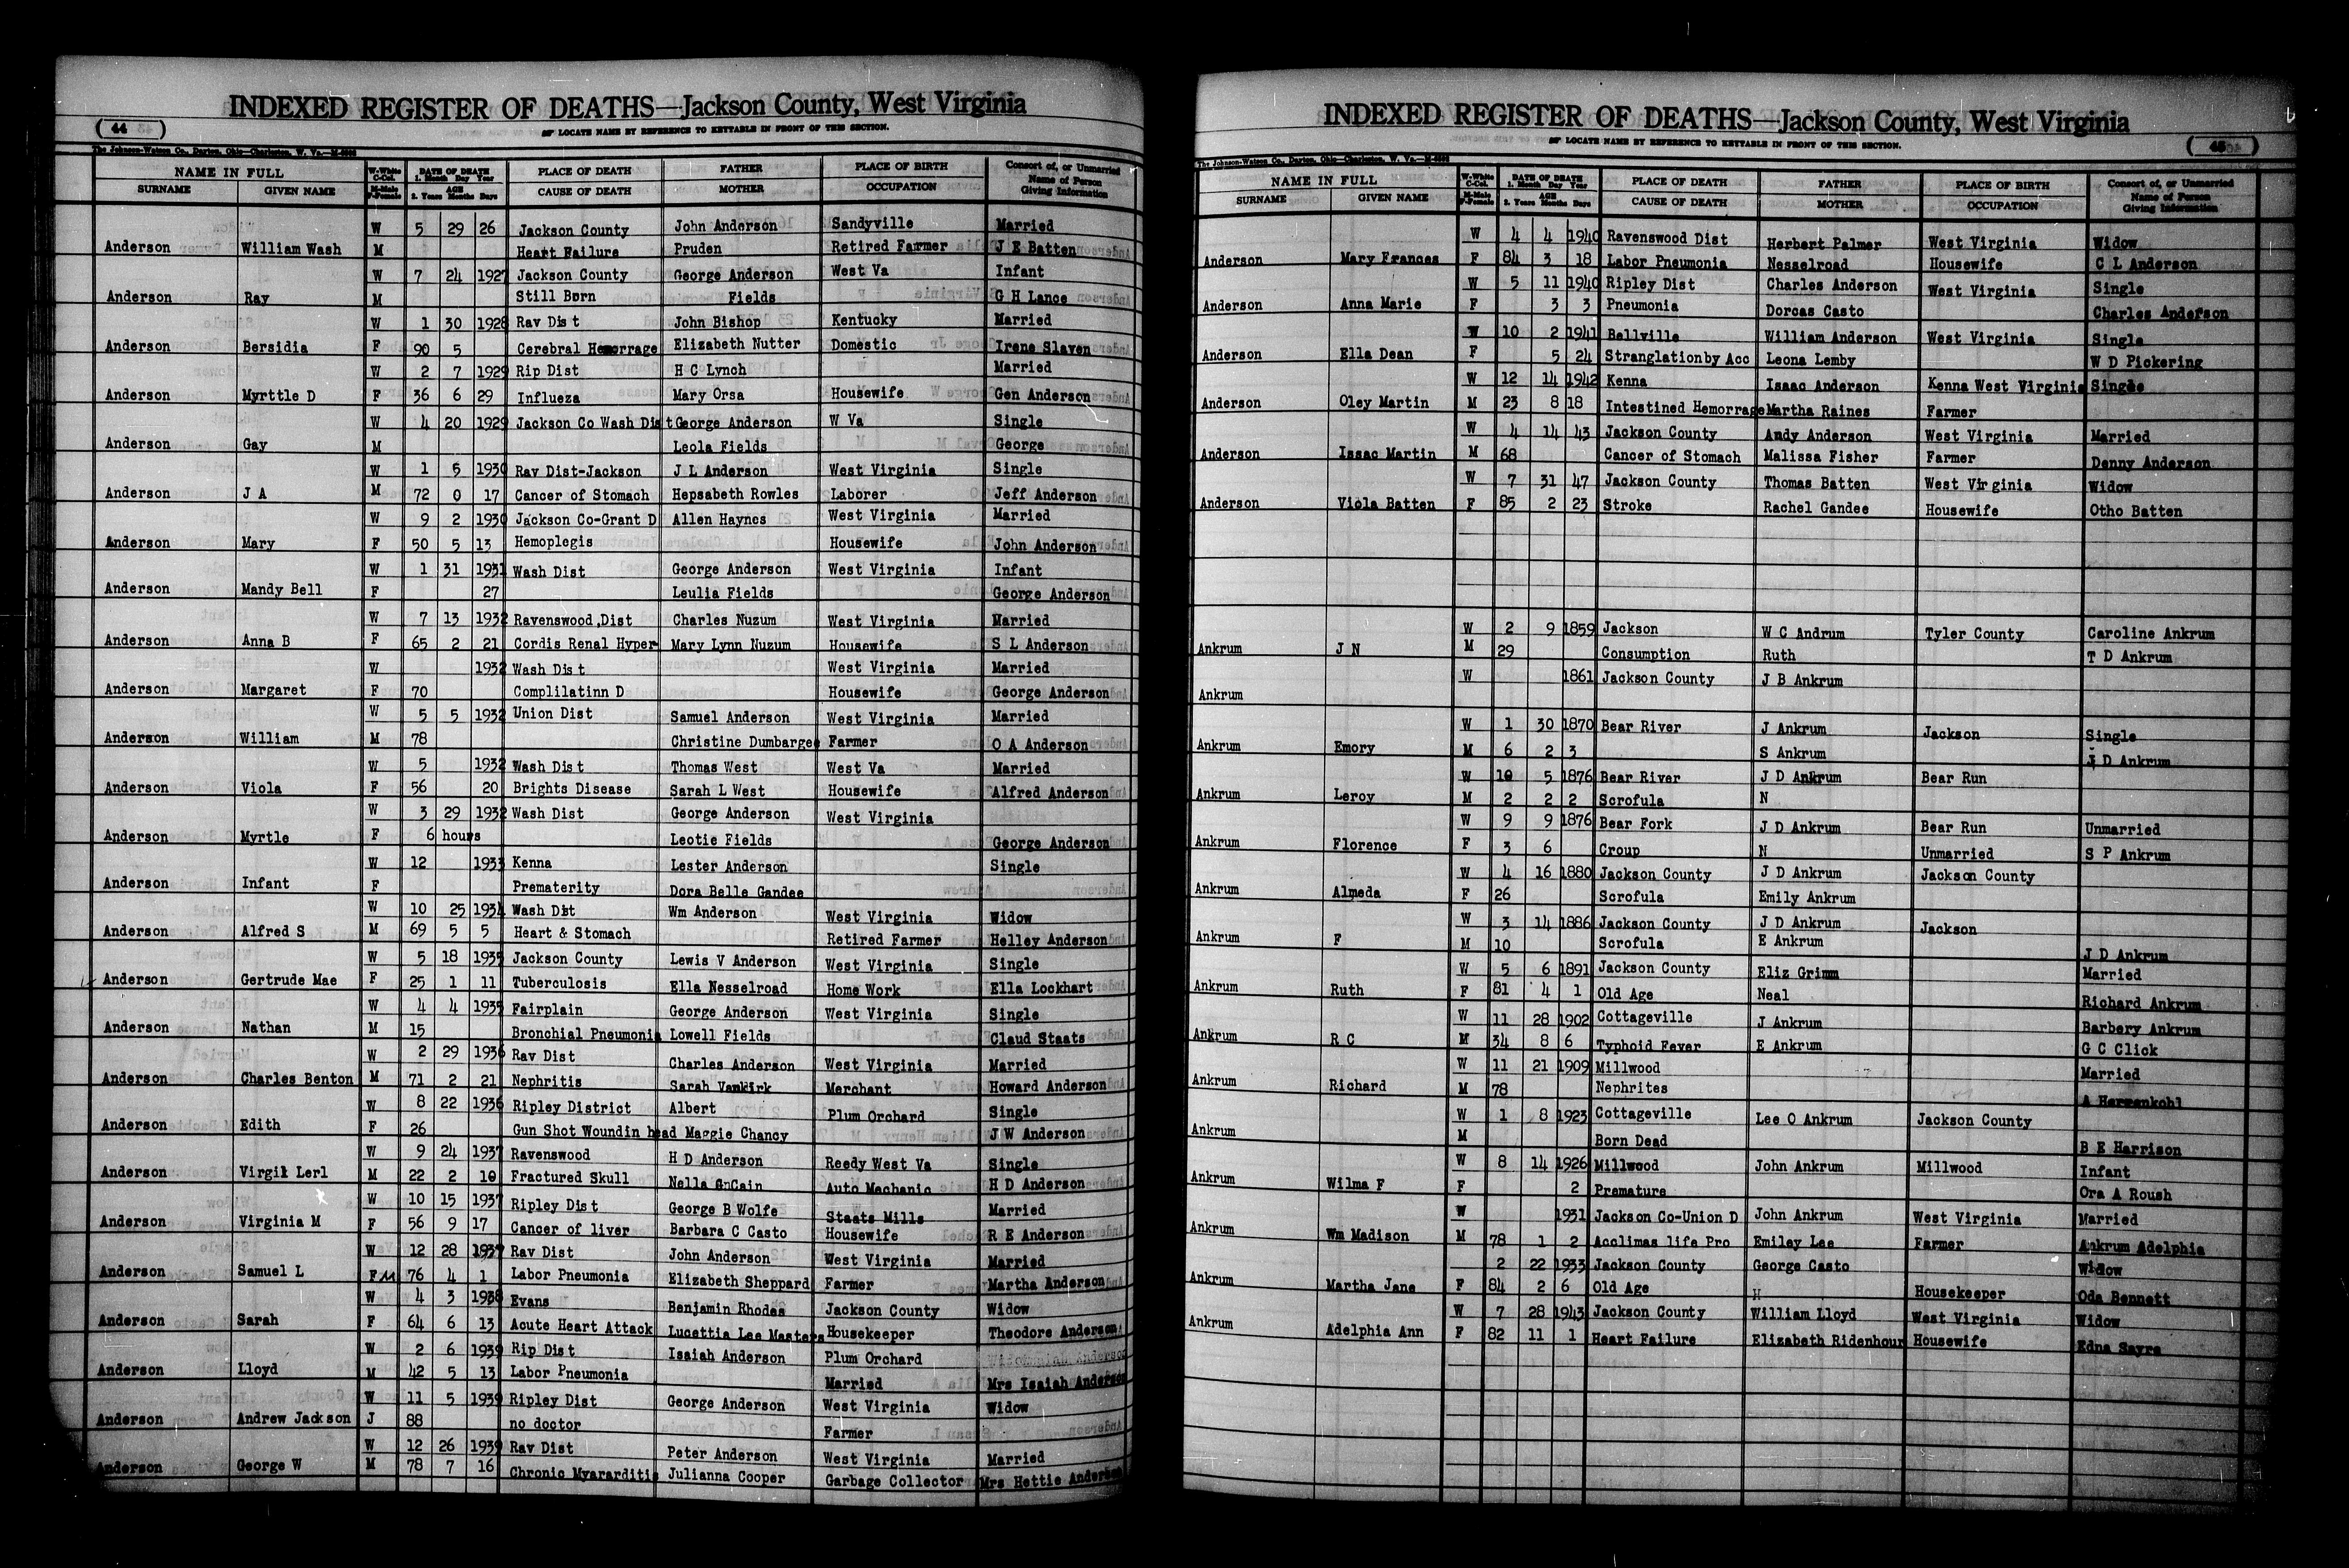 INDEXED REGISTER OF DEATHS—Jackson County, West Virginia
( 44 )
LOCATE NAME BY REFERENCE TO KEYTABLE IN FRONT OF THIS SECTION.
The Johnson-Watson Co., Dayton, Ohio—Charleston, W. Va.
NAME IN FULL W-White C-Col. DATE OF DEATH 1. Month Day Year PLACE OF DEATH FATHER PLACE OF BIRTH Consort of, or Unmarried
SURNAME GIVEN NAME M-Male F-Female AGE 2. Years Months Days CAUSE OF DEATH MOTHER OCCUPATION Name of Person Giving Information
W 5 29 26 Jackson County John Anderson Sandyville Married
Anderson William Wash M Heart Failure Pruden Retired Farmer J E Batten
W 7 24 1927 Jackson County George Anderson West Va Infant
Anderson Ray M Still Born Fields G H Lance
W 1 30 1928 Rav Dist John Bishop Kentucky Married
Anderson Bersidia F 90 5 Cerebral Hemorrage Elizabeth Nutter Domestic Irene Slaven
W 2 7 1929 Rip Dist H C Lynch Married
Anderson Myrttle D F 36 6 29 Influeza Mary Orsa Housewife Gen Anderson
W 4 20 1929 Jackson Co Wash Dist George Anderson W Va Single
Anderson Gay M Leola Fields George
W 1 5 1930 Rav Dist-Jackson J L Anderson West Virginia Single
Anderson J A M 72 0 17 Cancer of Stomach Hepsabeth Rowles Laborer Jeff Anderson
W 9 2 1930 Jackson Co-Grant D Allen Haynes West Virginia Married
Anderson Mary F 50 5 13 Hemoplegis Housewife John Anderson
W 1 31 1931 Wash Dist George Anderson West Virginia Infant
Anderson Mandy Bell F 27 Leulia Fields George Anderson
W 7 13 1932 Ravenswood,Dist Charles Nuzum West Virginia Married
Anderson Anna B F 65 2 21 Cordis Renal Hyper Mary Lynn Nuzum Housewife S L Anderson
W 1932 Wash Dist West Virginia Married
Anderson Margaret F 70 Complilatinn D Housewife George Anderson
W 5 5 1932 Union Dist Samuel Anderson West Virginia Married
Anderson William M 78 Christine Dumbargee Farmer O A Anderson
W 5 1932 Wash Dist Thomas West West Va Married
Anderson Viola F 56 20 Brights Disease Sarah L West Housewife Alfred Anderson
W 3 29 1932 Wash Dist George Anderson West Virginia
Anderson Myrtle F 6 hours Leotie Fields George Anderson
W 12 1933 Kenna Lester Anderson Single
Anderson Infant F Prematerity Dora Belle Gandee
W 10 25 1934 Wash Dit Wm Anderson West Virginia Widow
Anderson Alfred S M 69 5 5 Heart & Stomach Retired Farmer Helley Anderson
W 5 18 1935 Jackson County Lewis V Anderson West Virginia Single
Anderson Gertrude Mae F 25 1 11 Tuberculosis Ella Nesselroad Home Work Ella Lockhart
W 4 4 1935 Fairplain George Anderson West Virginia Single
Anderson Nathan M 15 Bronchial Pneumonia Lowell Fields Claud Staats
W 2 29 1936 Rav Dist Charles Anderson West Virginia Married
Anderson Charles Benton M 71 2 21 Nephritis Sarah Vankirk Merchant Howard Anderson
W 8 22 1936 Ripley District Albert Plum Orchard Single
Anderson Edith F 26 Gun Shot Woundin head Maggie Chancy J W Anderson
W 9 24 1937 Ravenswood H D Anderson Reedy West Va Single
Anderson Virgil Lerl M 22 2 10 Fractured Skull Nella GnCain Auto Mechanic H D Anderson
W 10 15 1937 Ripley Dist George B Wolfe Staats Mills Married
Anderson Virginia M F 56 9 17 Cancer of liver Barbara C Casto Housewife R E Anderson
W 12 28 1937 Rav Dist John Anderson West Virginia Married
Anderson Samuel L F M 76 4 1 Labor Pneumonia Elizabeth Sheppard Farmer Martha Anderson
W 4 3 1938 Evans Benjamin Rhodes Jackson County Widow
Anderson Sarah F 64 6 13 Acute Heart Attack Lucettia Lee Masters Housekeeper Theodore Anderson
W 2 6 1939 Rip Dist Isaiah Anderson Plum Orchard
Anderson Lloyd M 42 5 13 Labor Pneumonia Married Mrs Isaiah Anderson
W 11 5 1939 Ripley Dist George Anderson West Virginia Widow
Anderson Andrew Jackson J 88 no doctor Farmer
W 12 26 1939 Rav Dist Peter Anderson West Virginia Married
Anderson George W M 78 7 16 Chronic Myararditis Julianna Cooper Garbage Collector Mrs Hettie Anderson
INDEXED REGISTER OF DEATHS—Jackson County, West Virginia
( 45 )
LOCATE NAME BY REFERENCE TO KEYTABLE IN FRONT OF THIS SECTION.
The Johnson-Watson Co., Dayton, Ohio—Charleston, W. Va.
NAME IN FULL W-White C-Col. DATE OF DEATH 1. Month Day Year PLACE OF DEATH FATHER PLACE OF BIRTH Consort of, or Unmarried
SURNAME GIVEN NAME M-Male F-Female AGE 2. Years Months Days CAUSE OF DEATH MOTHER OCCUPATION Name of Person Giving Information
W 4 4 1940 Ravenswood Dist Herbert Palmer West Virginia Widow
Anderson Mary Frances F 84 3 18 Labor Pneumonia Nesselroad Housewife C L Anderson
W 5 11 1940 Ripley Dist Charles Anderson West Virginia Single
Anderson Anna Marie F 3 3 Pneumonia Dorcas Casto Charles Anderson
W 10 2 1941 Bellville William Anderson West Virginia Single
Anderson Ella Dean F 5 24 Stranglationby Acc Leona Lemby W D Pickering
W 12 14 1942 Kenna Isaac Anderson Kenna West Virginia Single
Anderson Oley Martin M 23 8 18 Intestined Hemorrage Martha Raines Farmer
W 4 14 43 Jackson County Andy Anderson West Virginia Married
Anderson Issac Martin M 68 Cancer of Stomach Malissa Fisher Farmer Denny Anderson
W 7 31 47 Jackson County Thomas Batten West Virginia Widow
Anderson Viola Batten F 85 2 23 Stroke Rachel Gandee Housewife Otho Batten
W 2 9 1859 Jackson W C Andrum Tyler County Caroline Ankrum
Ankrum J N M 29 Consumption Ruth T D Ankrum
W 1861 Jackson County J B Ankrum
Ankrum
W 1 30 1870 Bear River J Ankrum Jackson Single
Ankrum Emory M 6 2 3 S Ankrum J D Ankrum
W 10 5 1876 Bear River J D Ankrum Bear Run
Ankrum Leroy M 2 2 2 Scrofula N
W 9 9 1876 Bear Fork J D Ankrum Bear Run Unmarried
Ankrum Florence F 3 6 Croup N Unmarried S P Ankrum
W 4 16 1880 Jackson County J D Ankrum Jackson County
Ankrum Almeda F 26 Scrofula Emily Ankrum
W 3 14 1886 Jackson County J D Ankrum Jackson
Ankrum F M 10 Scrofula E Ankrum J D Ankrum
W 5 6 1891 Jackson County Eliz Grimm Married
Ankrum Ruth F 81 4 1 Old Age Neal Richard Ankrum
W 11 28 1902 Cottageville J Ankrum Barbery Ankrum
Ankrum R C M 34 8 6 Typhoid Fever E Ankrum G C Click
W 11 21 1909 Millwood Married
Ankrum Richard M 78 Nephrites A Herrenkohl
W 1 8 1923 Cottageville Lee O Ankrum Jackson County
Ankrum M Born Dead B E Harrison
W 8 14 1926 Millwood John Ankrum Millwood Infant
Ankrum Wilma F F 2 Premature Ora A Roush
W 1931 Jackson Co-Union D John Ankrum West Virginia Married
Ankrum Wm Madison M 78 1 2 Acclimas life Pro Emiley Lee Farmer Ankrum Adelphia
2 22 1933 Jackson County George Casto Widow
Ankrum Martha Jane F 84 2 6 Old Age H Housekeeper Oda Bennett
W 7 28 1943 Jackson County William Lloyd West Virginia Widow
Ankrum Adelphia Ann F 82 11 1 Heart Failure Elizabeth Ridenhour Housewife Edna Sayre